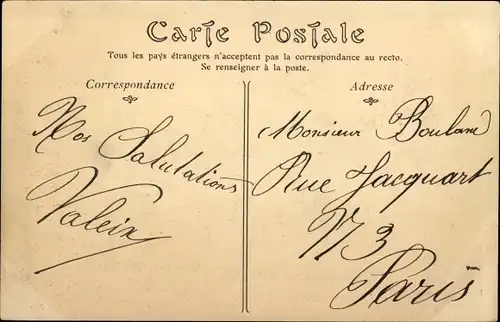 Carte Postale
Tous les pays étrangers n'acceptent pas la correspondance au recto.
Se renseigner à la poste.
Correspondance
Nos Salutations
Valeix
Adresse
Monsieur Boulant
Rue Jacquart
N 3
Paris